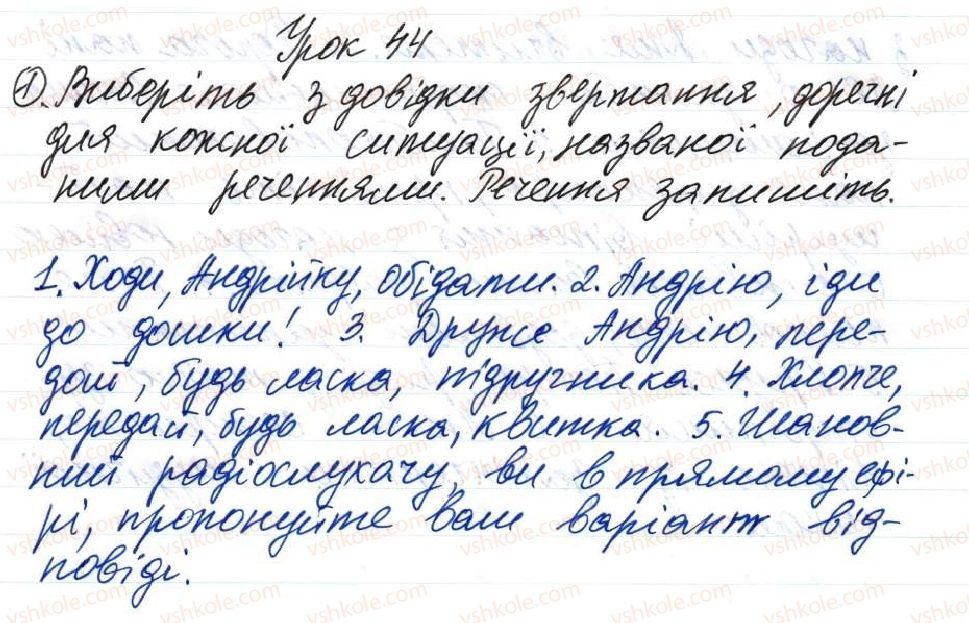 Урок 44
①. Виберіть з довідки звертання, доречні
для кожної ситуації, названої пода-
ними реченнями. Речення запишіть.
1. Ходи, Андрійку, обідати. 2. Андрію, іди
до дошки! 3. Друже Андрію, пере-
дай, будь ласка, підручника. 4. Хлопче,
передай, будь ласка, квитка. 5. Шанов-
ний радіослухачу, ви в прямому ефі-
рі, пропонуйте ваш варіант від-
повіді.